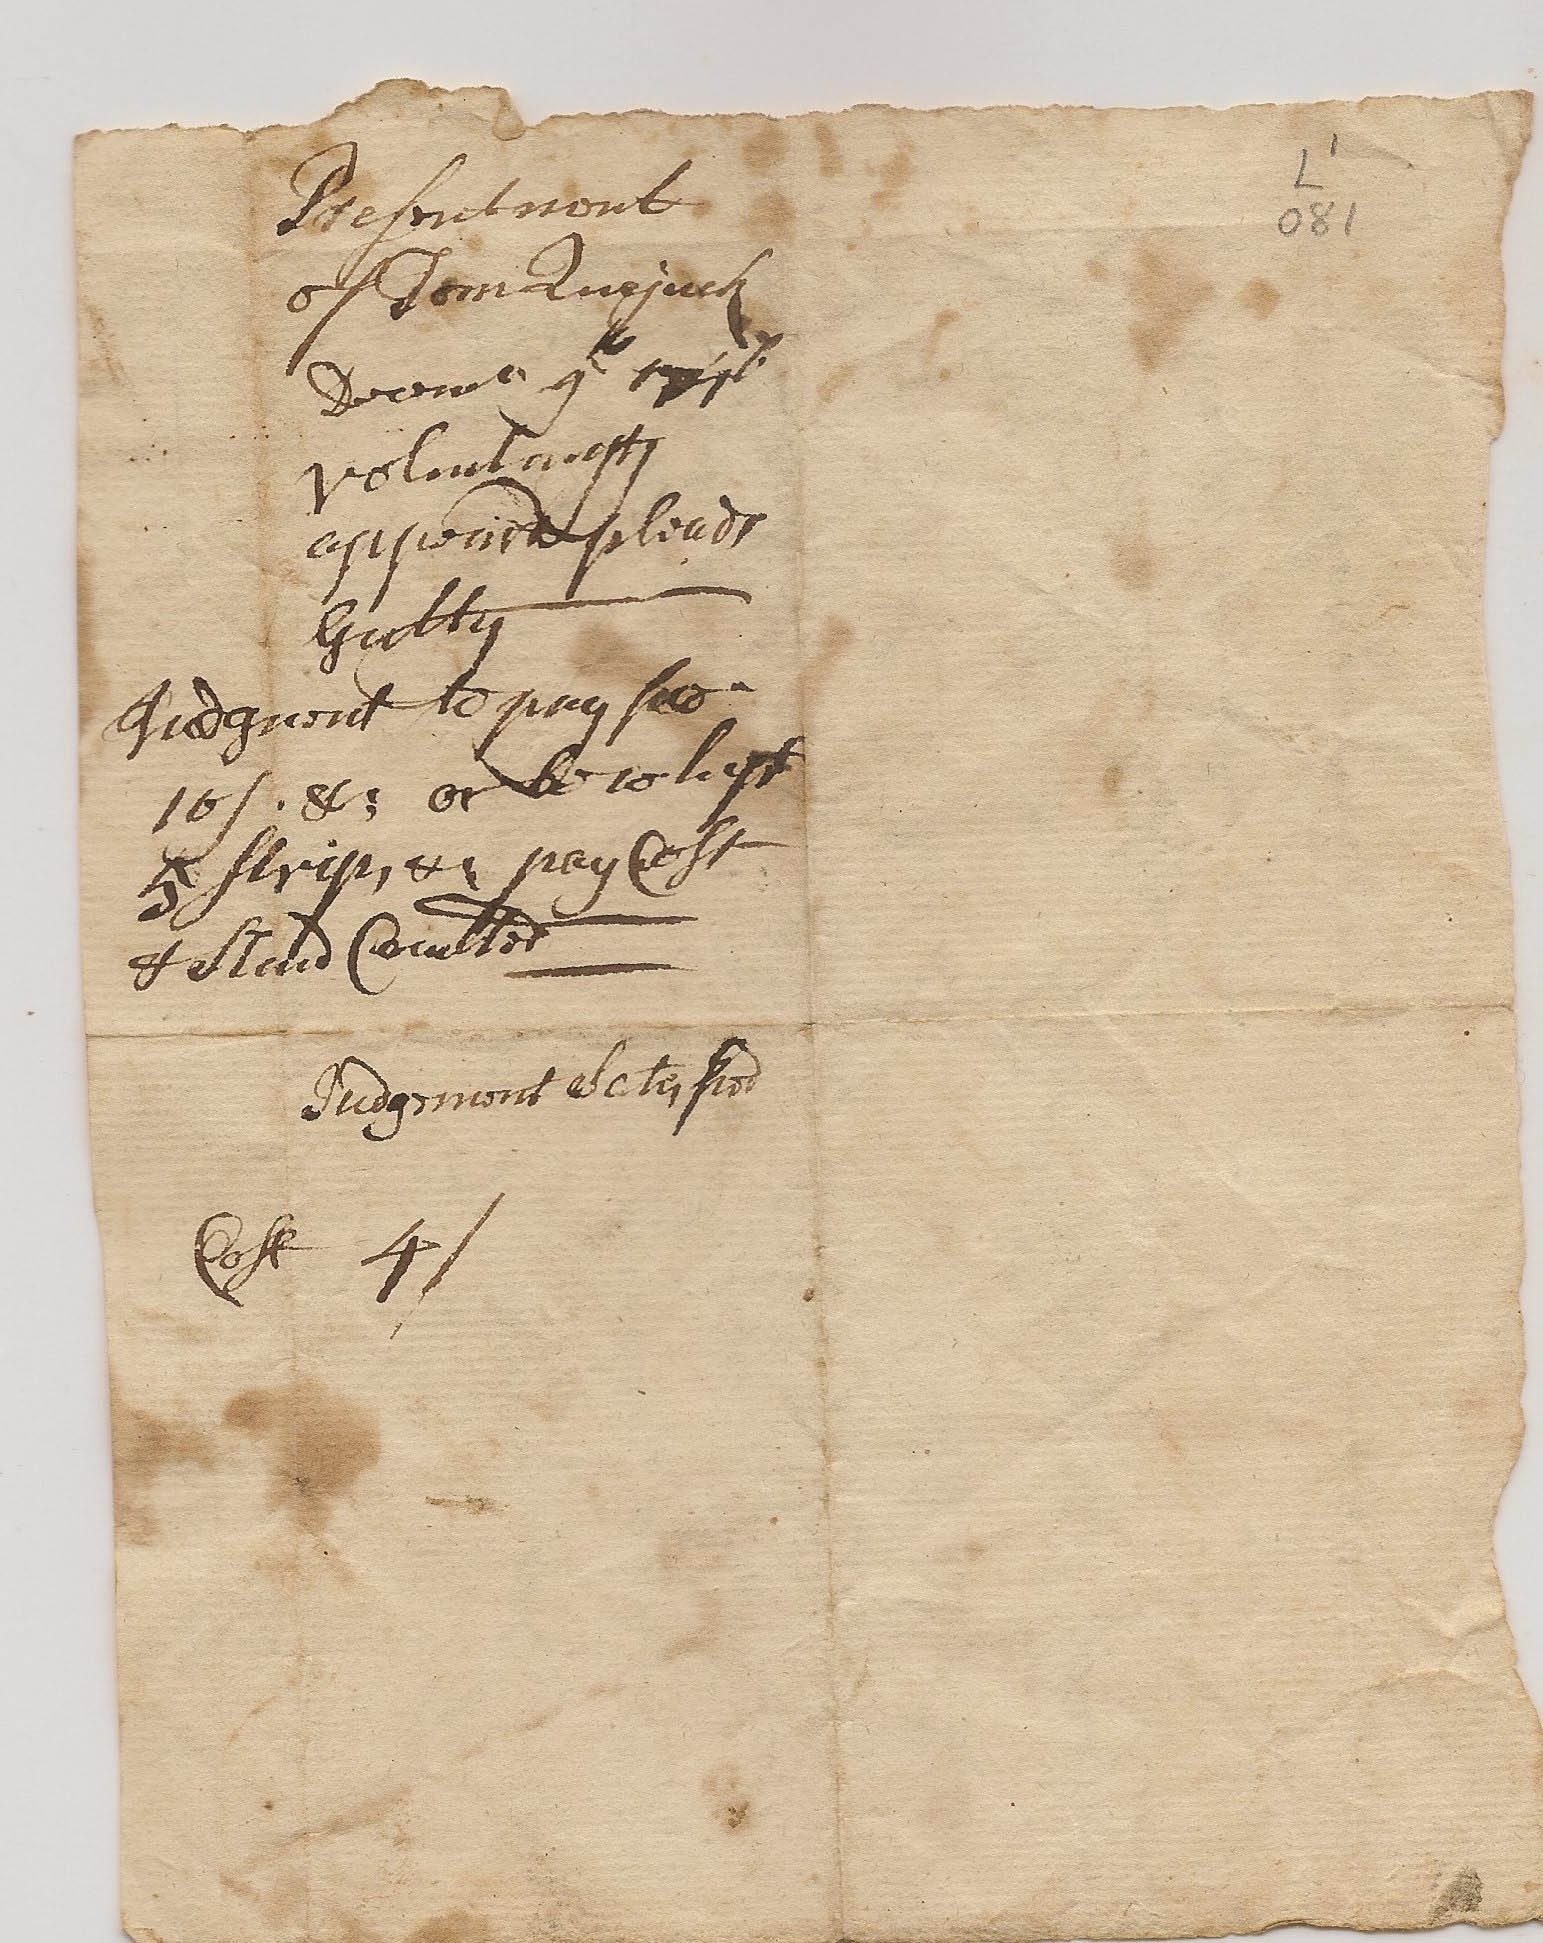 Presentment
of Tom Quejuck
Decemr 9th
voluntaryly
appeard pleads
Guilty
Judgment to pay fine
10/. &c: or be whipt
5 strips, &c; pay Cost
& Stand Comitted
Judgement Satisfied
Cost 4/
L1
081